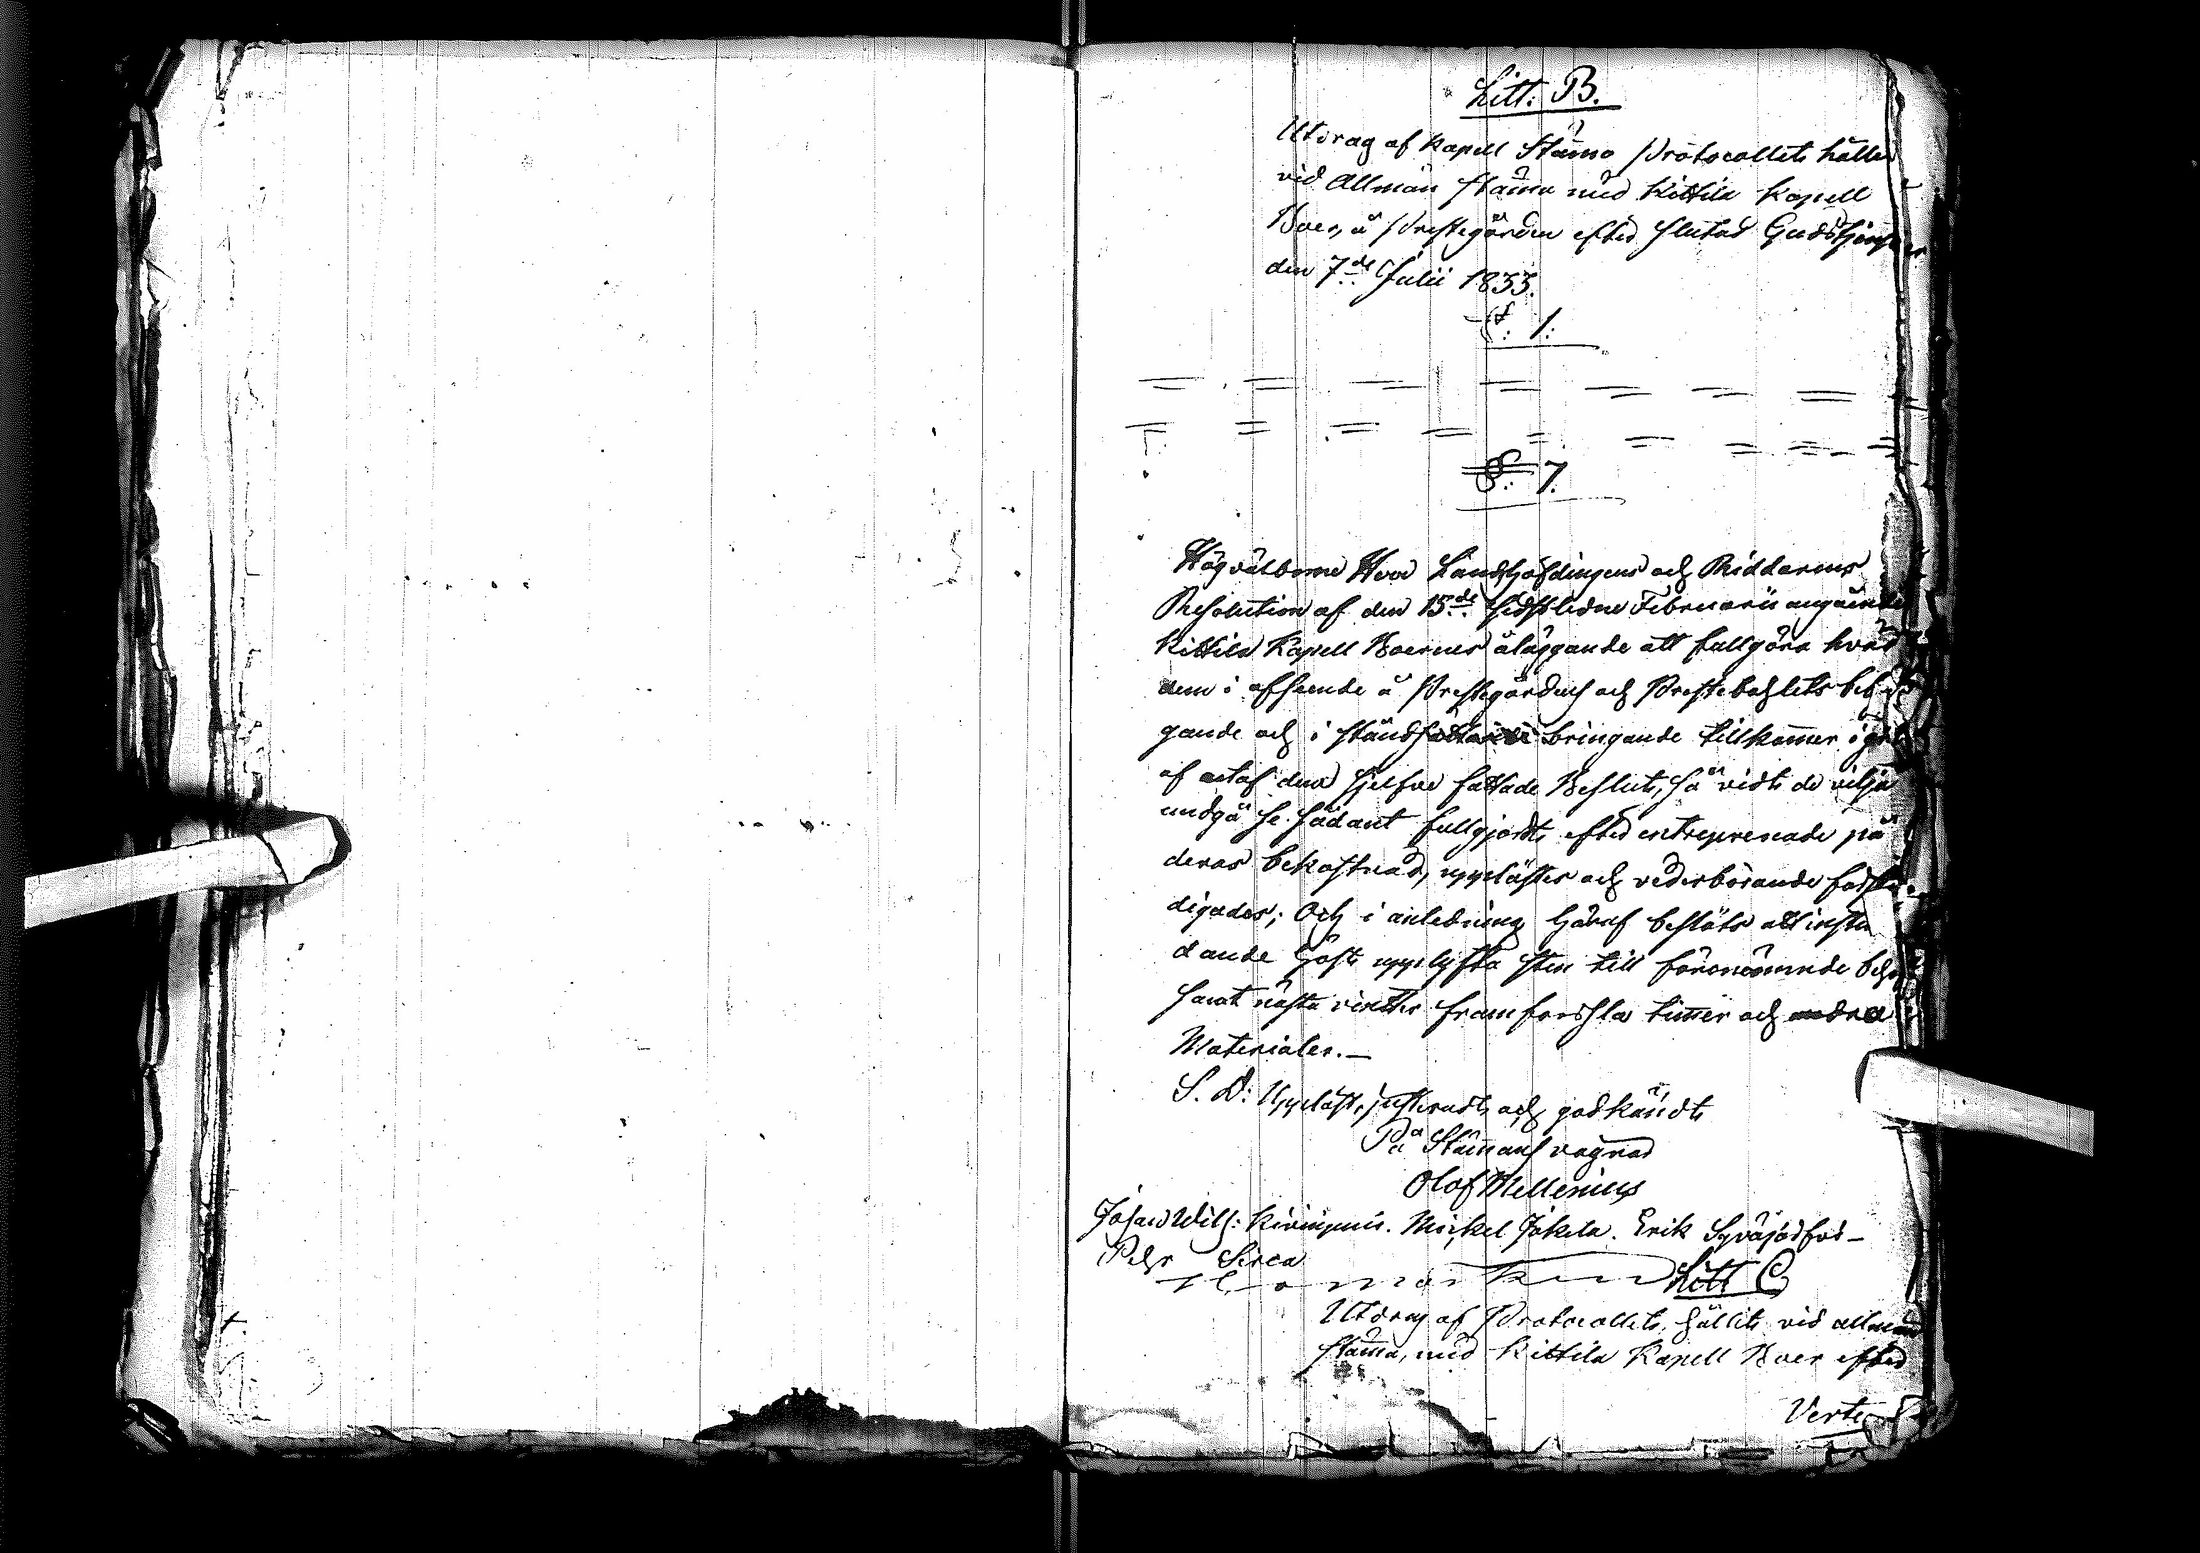 Litt. B.
Utdrag af Kapell Stämo Protocollet hållet
vid Allmän stämma med Kittilä Kapell
Boer, å Prestegården efter slutad Gudstjenst
den 7:de Julii 1833.
§. 1.
§. 7.
Högvälborne Herr Landshöfdingens och Riddarens
Resolution af den 15:de sidstledne Februarii angående
Kittilä Kapell Boernes åläggande att fullgöra hvad
dem i afseende å Prestegårdens och Prestebohlets
gande och i stånd bringande tillkommer
af sjelfve fattade Beslut, så vidt de vilja
undgå se sådant fullgjordt efter entreprenade på
deras bekostnad, upplästes och vederbörande
digades; Och i anledning häraf beslöts att
dande höst sten till förenämnde
samt nästa vinter framforsla timmer och andra
Materialer.—
S. D: Uppläst, justeradt och godkändt
På Stämmans vägnar
Olof Mellenius
Johan Wilh: Mickel Jokela. Erik
Pehr Sirca
Litt C
Utdrag af Protocollet, hållit vid allmän
stämma, med Kittilä Kapell Boer efter
Verte